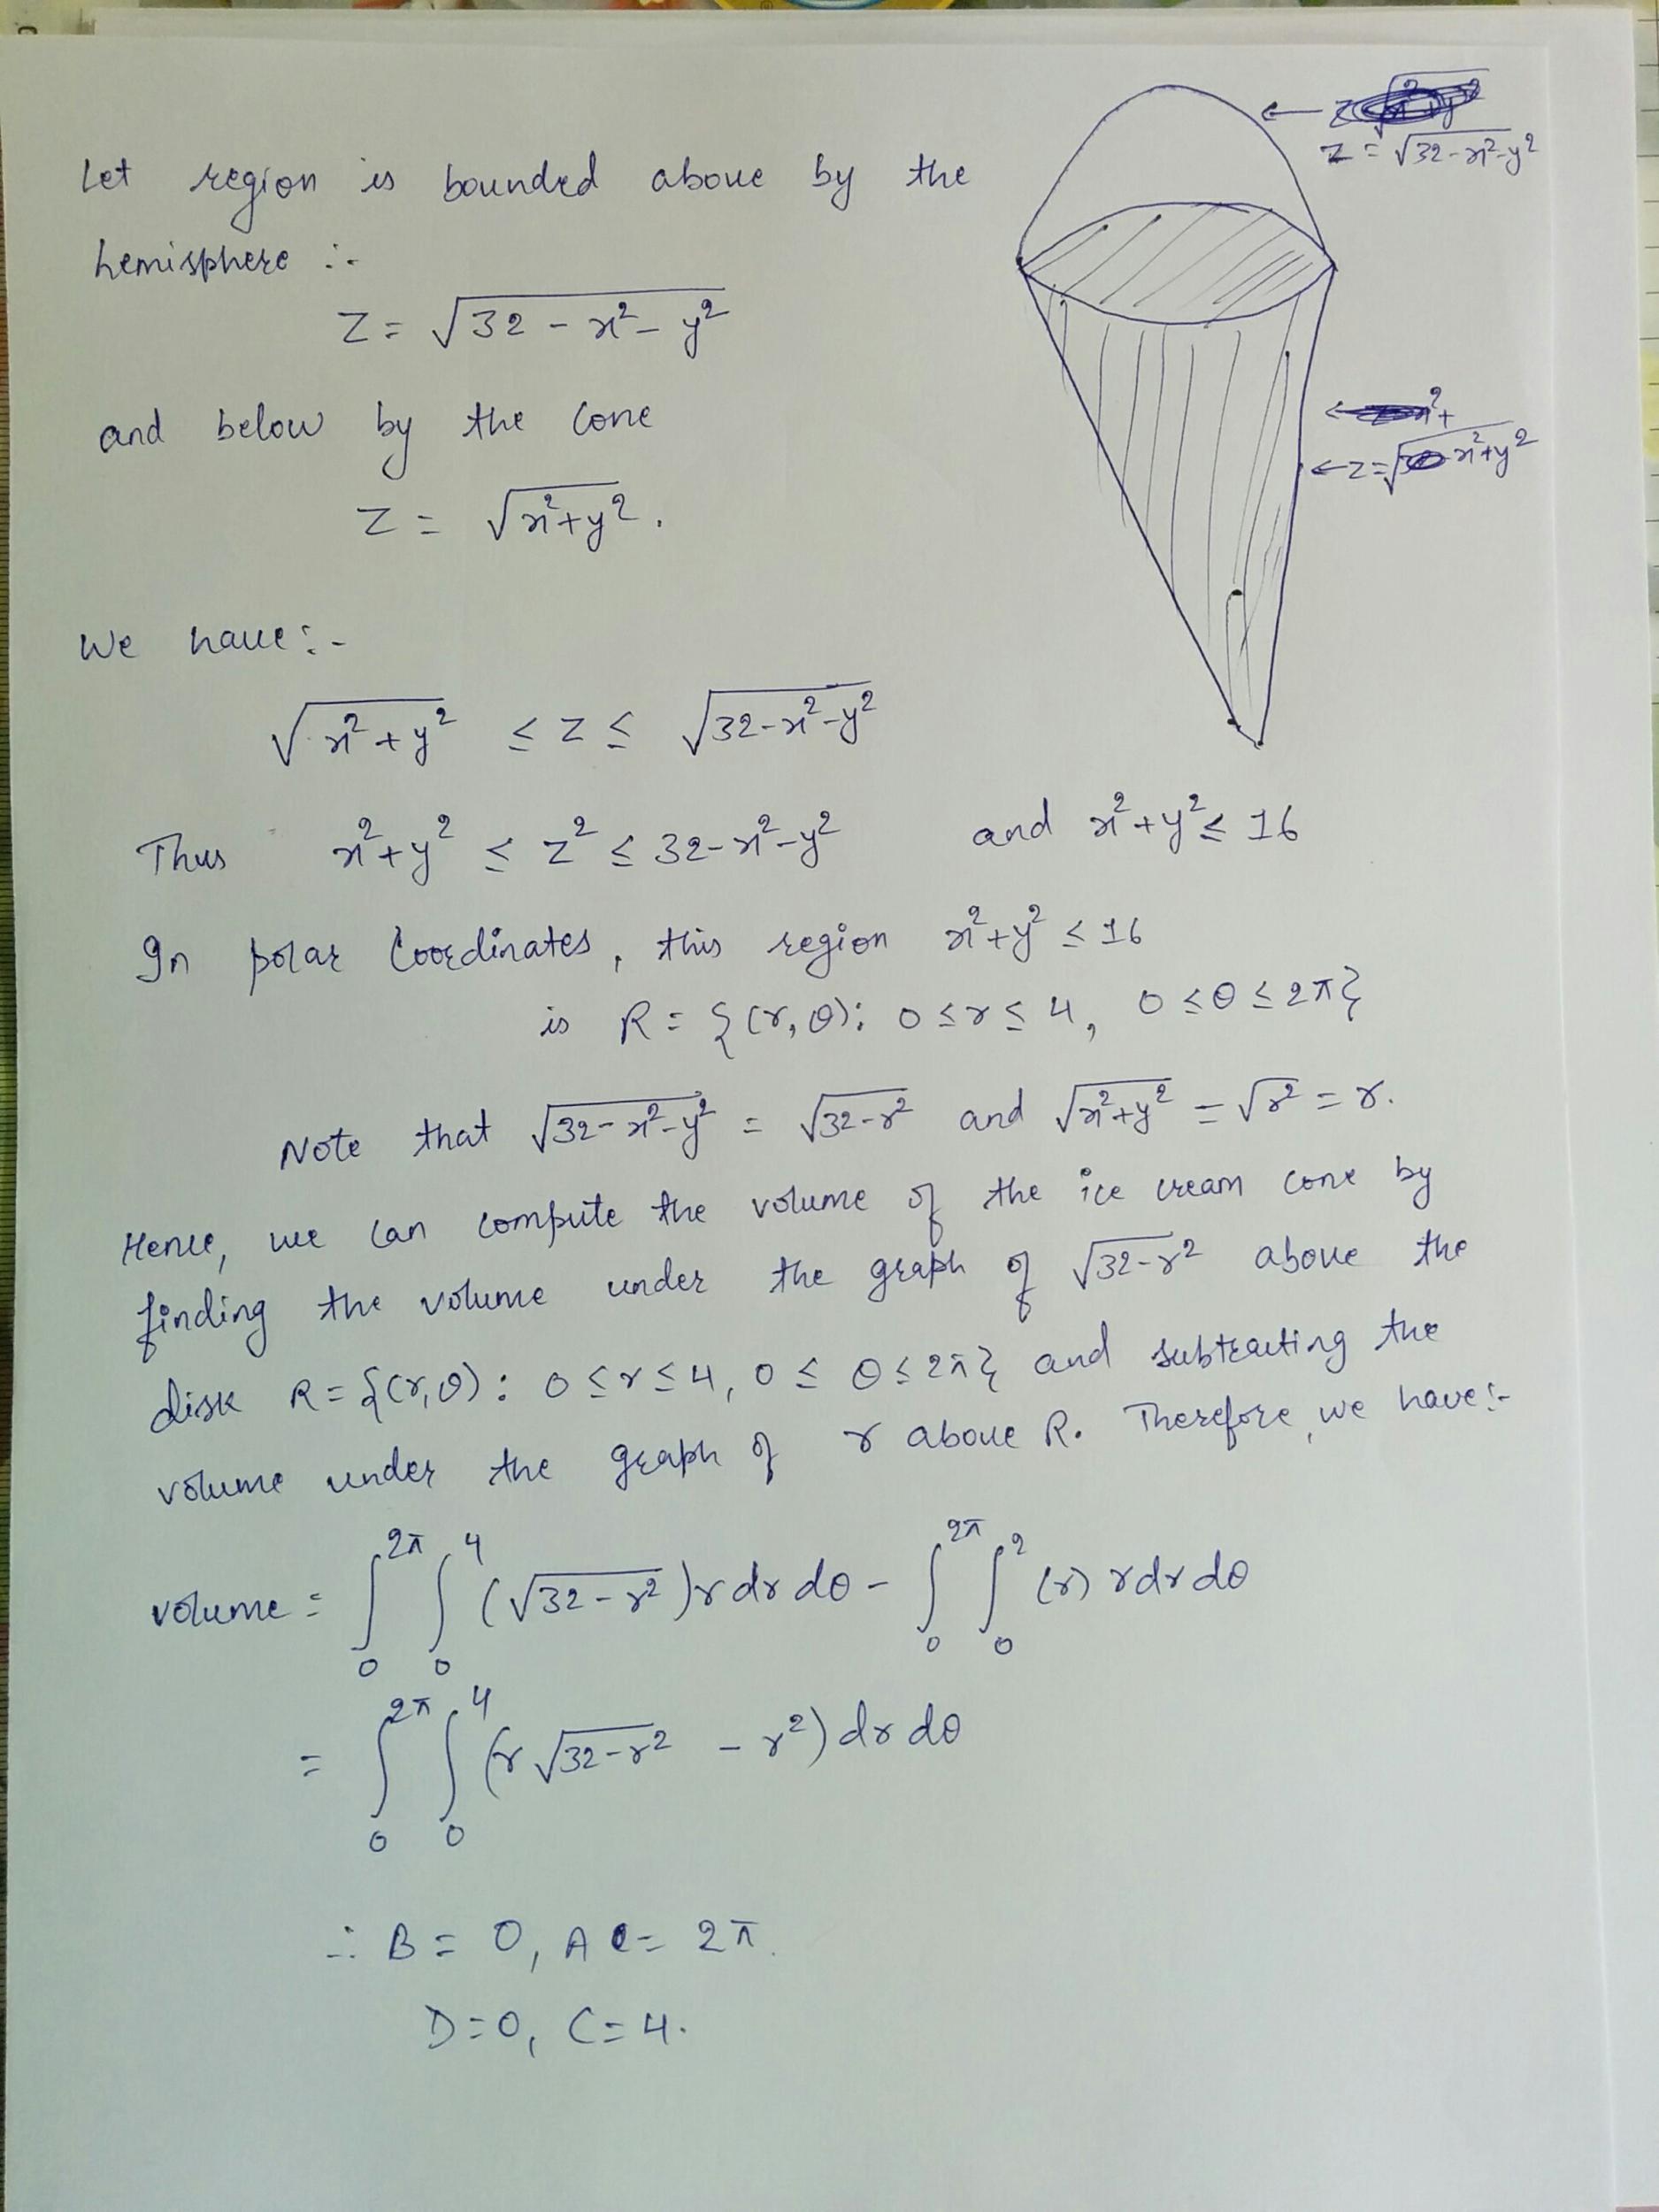 Let region is bounded above by the
hemisphere :-
z = √32 - x² - y²
and below by the cone
z = √x²+y² .
z = √32-x²-y²
← z = √x²+y²
We have :-
√x²+y² ≤ z ≤ √32-x²-y²
Thus x²+y² ≤ z² ≤ 32-x²-y² and x²+y² ≤ 16
In polar coordinates, this region x²+y² ≤ 16
is R = {(r, θ): 0 ≤ r ≤ 4, 0 ≤ θ ≤ 2π}
Note that √32-x²-y² = √32-r² and √x²+y² = √r² = r.
Hence, we can compute the volume of the ice cream cone by
finding the volume under the graph of √32-r² above the
disk R = {(r,θ): 0 ≤ r ≤ 4, 0 ≤ θ ≤ 2π} and subtracting the
volume under the graph of r above R. Therefore, we have:-
volume = ∫₀^2π ∫₀^4 (√32-r²) r dr dθ - ∫₀^2π ∫₀^2 (r) r dr dθ
= ∫₀^2π ∫₀^4 (r √32-r² - r²) dr dθ
∴ B = 0, A = 2π.
D=0, C=4.